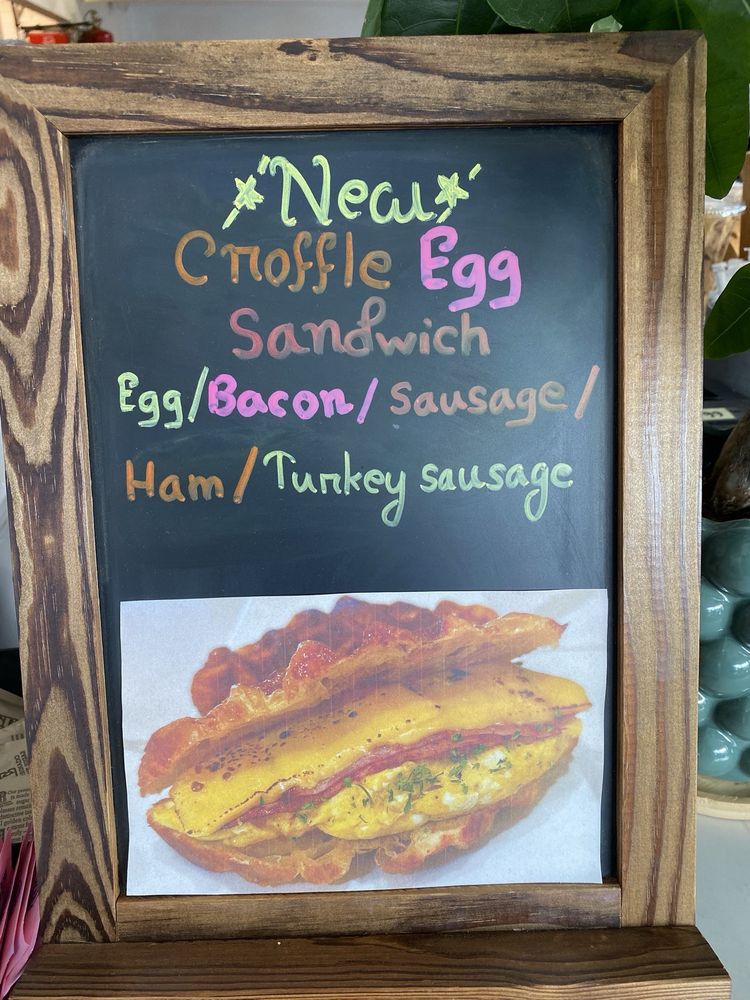 New
Croffle Egg
Sandwich
Egg/Bacon/Sausage/
Ham/Turkey sausage